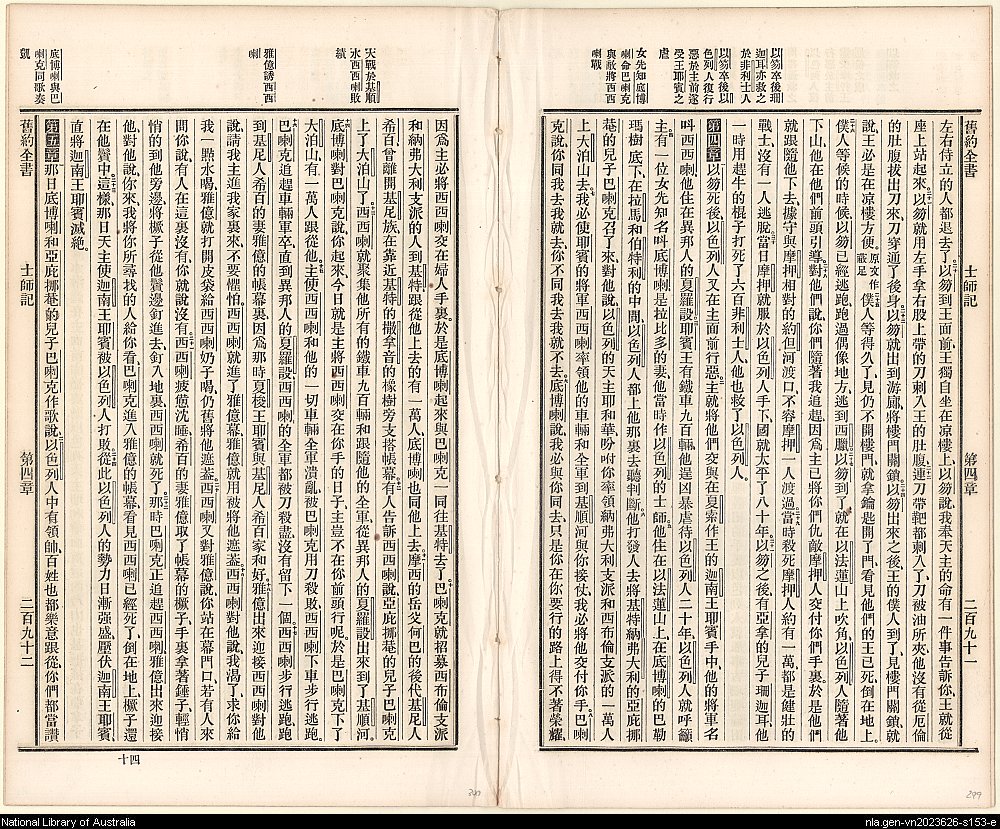 舊約全書 士師記 第四章 二百九十一
以笏卒後珊
迦耳亦救之
於非利士人
以笏卒後以
色列人復行
惡於主前遂
受王耶賓之
虐
女先知底博
喇命巴喇克
與敵將西西
喇戰
左右侍立的人都退去了以笏到王面前王獨自坐在凉樓上以笏說我奉天主的命有一件事告訴你王就從
座上站起來以笏就用左手拿右股上帶的刀刺入王的肚腹連刀帶靶都刺入了刀被油所夾他沒有從厄倫
的肚腹拔出刀來刀穿通了後身以笏就出到游廊將樓門關鎖以笏出來之後王的僕人到了見樓門關鎖就
說王必是在凉樓方便原文作蔽足僕人等得久了見仍不開樓門就拿鑰匙開了門看見他們的王已死倒在地上
僕人等候的時候以笏已經逃跑跑過偶像地方逃到西臘以笏到了就在以法蓮山上吹角以色列人隨著他
下山他在他們前頭引導對他們說你們隨著我追趕因爲主已將你們仇敵摩押人交付你們手裏於是他們
就跟隨他下去據守與摩押相對的約但河渡口不容摩押一人渡過當時殺死摩押人約有一萬都是健壯的
戰士沒有一人逃脫當日摩押就服於以色列人手下國就太平了八十年以笏之後有亞拿的兒子珊迦耳他
一時用趕牛的棍子打死了六百非利士人他也救了以色列人
第四章以笏死後以色列人又在主面前行惡主就將他們交與在夏索作王的迦南王耶賓手中他的將軍名
叫西西喇他住在異那人的夏羅設耶賓王有鐵車九百輛他逞凶暴虐待以色列人二十年以色列人就呼籲
主有一位女先知名叫底博喇是拉比多的妻他當時作以色列的士師他住在以法蓮山上在底博喇的巴勒
瑪樹底下在拉馬和伯特利的中間以色列人都上他那裏去聽判斷他打發人去將基特納弗大利的亞庇挪
菴的兒子巴喇克召了來對他說以色列的天主耶和華吩咐你率領納弗大利支派和西布倫支派的一萬人
上大泊山去我必使耶賓的將軍西西喇率領他的車輛和全軍到基順河與你接仗我必將他交付你手巴喇
克說你同我去我就去你不同我去我就不去底博喇說我必與你同去只是你在你要行的路上得不著榮耀
天戰於基順
水西西喇敗
績
雅億誘西西
喇
底博喇與巴
喇克同歌奏
凱
因爲主必將西西喇交在婦人手裏於是底博喇起來與巴喇克一同往基特去了巴喇克就招募西布倫支派
和納弗大利支派的人到基特跟從他上去的有一萬人底博喇也同他上去摩西的岳父何巴的後代基尼人
希百曾離開基尼族在靠近基特的撒拿音的橡樹旁支搭帳幕有人告訴西西喇說亞庇挪菴的兒子巴喇克
上了大泊山了西西喇就聚集他所有的鐵車九百輛和跟隨他的全軍從異那人的夏羅設出來到了基順河
底博喇對巴喇克說你起來今日就是主將西西喇交在你手的日子主豈不在你前頭行呢於是巴喇克下了
大泊山有一萬人跟從他主使西西喇和他的一切車輛全軍潰亂被巴喇克用刀殺敗西西喇下車步行逃跑
巴喇克追趕車輛軍卒直到異那人的夏羅設西西喇的全軍都被刀殺盡沒有留下一個西西喇步行逃跑跑
到基尼人希百的妻雅億的帳幕裏因爲那時夏梭王耶賓與基尼人希百家和好雅億出來迎接西西喇對他
說請我主進我家裏來不要懼怕西西喇就進了雅億帳幕雅億就用被將他遮蓋西西喇對他說我渴了求你給
我一點水喝雅億就打開皮袋給西西喇奶子喝仍舊將他遮蓋西西喇又對雅億說你站在幕門口若有人來
問你說有人在這裏沒有你就說沒有西西喇疲憊沈睡希百的妻雅億取了帳幕的橛子手裏拿著錘子輕悄
悄的到他旁邊將橛子從他鬢邊釘進去釘入地裏西西喇就死了那時巴喇克正追趕西西喇雅億出來迎接
他對他說你來我將你所尋找的人給你看巴喇克進入雅億的帳幕看見西西喇已經死了倒在地上橛子還
在他鬢中這樣那日天主使迦南王耶賓被以色列人打敗從此以色列人的勢力日漸强盛壓伏迦南王耶賓
直將迦南王耶賓滅絶
第五章那日底博喇和亞庇挪菴的兒子巴喇克作歌說以色列人中有領帥百姓也都樂意跟從你們都當讚
舊約全書 士師記 第四章 二百九十二
四十
300
299
National Library of Australia
nla.gen-vn2023626-s153-e